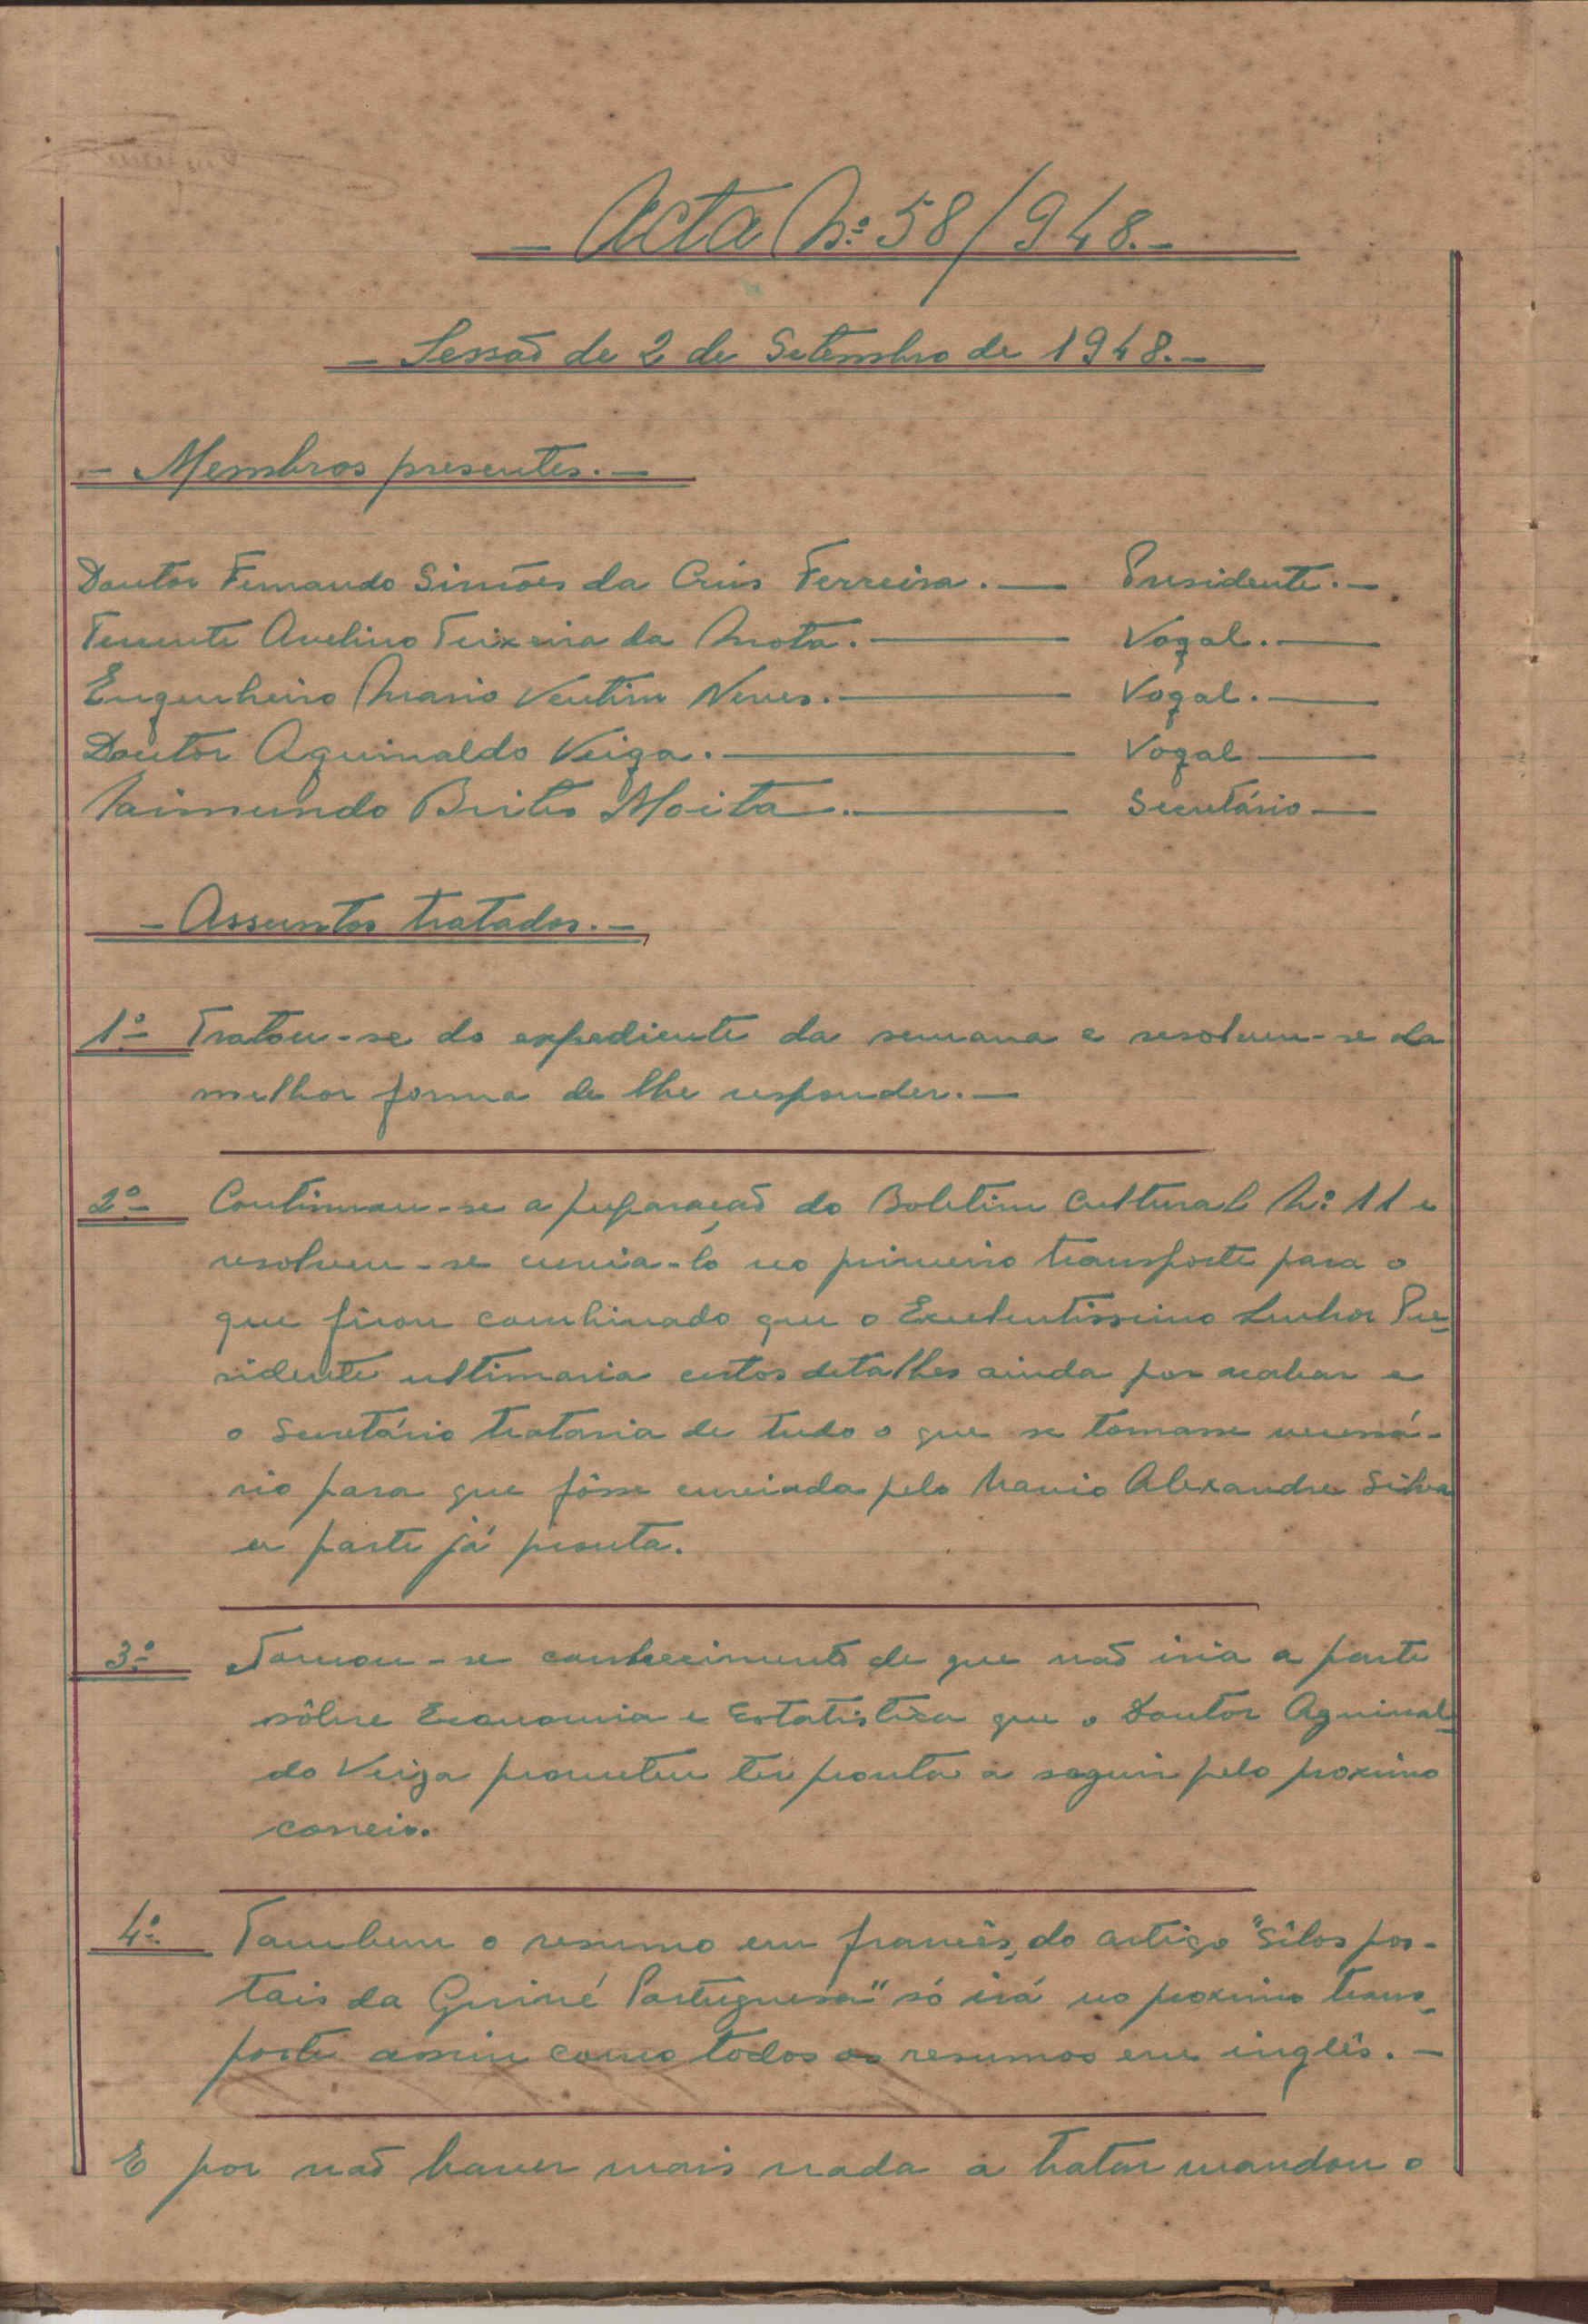 - Acta Nº 58/948.-
- Sessão de 2 de Setembro de 1948.-
- Membros presentes.-
Doutor Fernando Simões da Crús Ferreira.— Presidente.-
Tenente Avelino Teixeira da Mota.— Vogal.—
Engenheiro Mario Ventim Neves.— Vogal.—
Doutor Aguinaldo Veiga.— Vogal—
Raimundo Brites Moita.— Secretário—
- Assuntos tratados.-
1º- Tratou-se do expediente da semana e resolveu-se da
melhor forma de lhe responder.—
2º- Continuou-se a preparação do Boletim Cultural Nº 11 e
resolveu-se envia-lo no primeiro transporte para o
que ficou combinado que o Excelentissimo Senhor Pre-
sidente ultimaria certos detalhes ainda por acabar e
o Secretário trataria de tudo o que se tornasse necessá-
rio para que fôsse enviada pelo Navio Alexandre Silva
a parte já pronta.
3º- Tomou-se conhecimento de que não iria a parte
sôbre Economia e Estatistica que o Doutor Aguinal-
do Veiga prometeu ter pronta a seguir pelo proximo
correio.
4º- Tambem o resumo em francês, do artigo "Sêlos pos-
tais da Guiné Portuguesa" só irá no proximo trans-
porte assim como todos os resumos em inglês.-
E por não haver mais nada a tratar mandou o